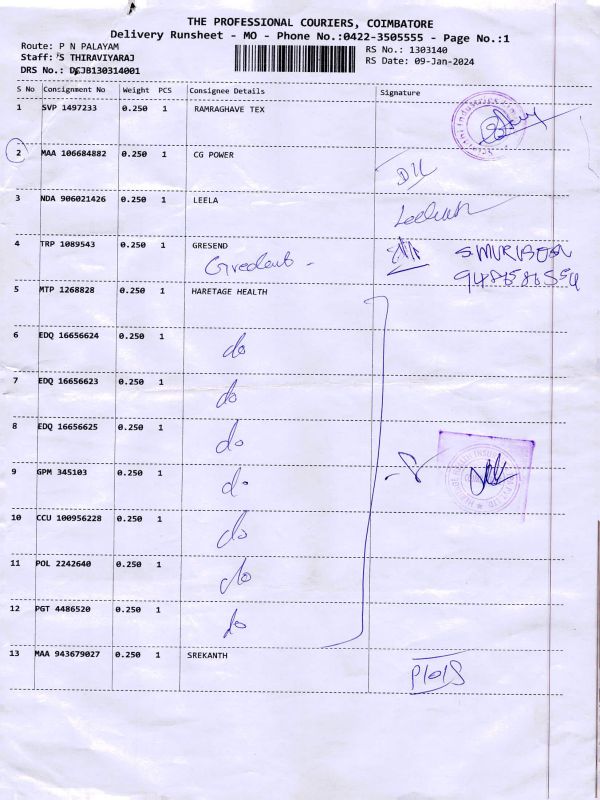 THE PROFESSIONAL COURIERS, COIMBATORE
Delivery Runsheet - MO - Phone No.:0422-3505555 - Page No.:1
Route: P N PALAYAM
RS No.: 1303140
Staff: S THIRAVIYARAJ
RS Date: 09-Jan-2024
DRS No.: DCJB130314001
S No Consignment No Weight PCS Consignee Details Signature
1 SVP 1497233 0.250 1 RAMRAGHAVE TEX
2 MAA 106684882 0.250 1 CG POWER
3 NDA 906021426 0.250 1 LEELA
4 TRP 1089543 0.250 1 GRESEND
5 MTP 1268828 0.250 1 HARETAGE HEALTH
6 EDQ 16656624 0.250 1 do
7 EDQ 16656623 0.250 1 do
8 EDQ 16656625 0.250 1 do
9 GPM 345103 0.250 1 do
10 CCU 100956228 0.250 1 do
11 POL 2242640 0.250 1 do
12 PGT 4486520 0.250 1 do
13 MAA 943679027 0.250 1 SREKANTH